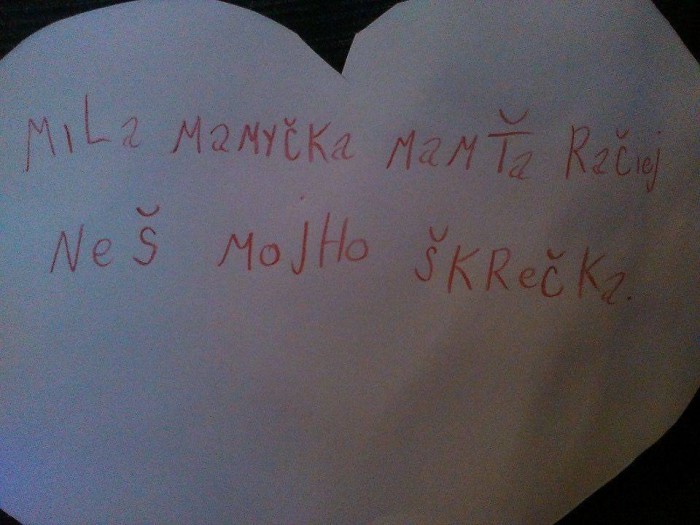 MiLa MaMYČKa MaM Ťa RaČiej
NeŠ MOJHO ŠKReČKa.